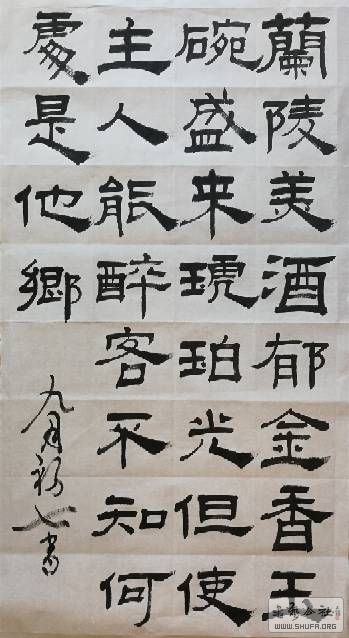 蘭陵美酒郁金香玉
碗盛来琥珀光但使
主人能醉客不知何
處是他鄉
九月初七書
WWW.SHUFA.ORG